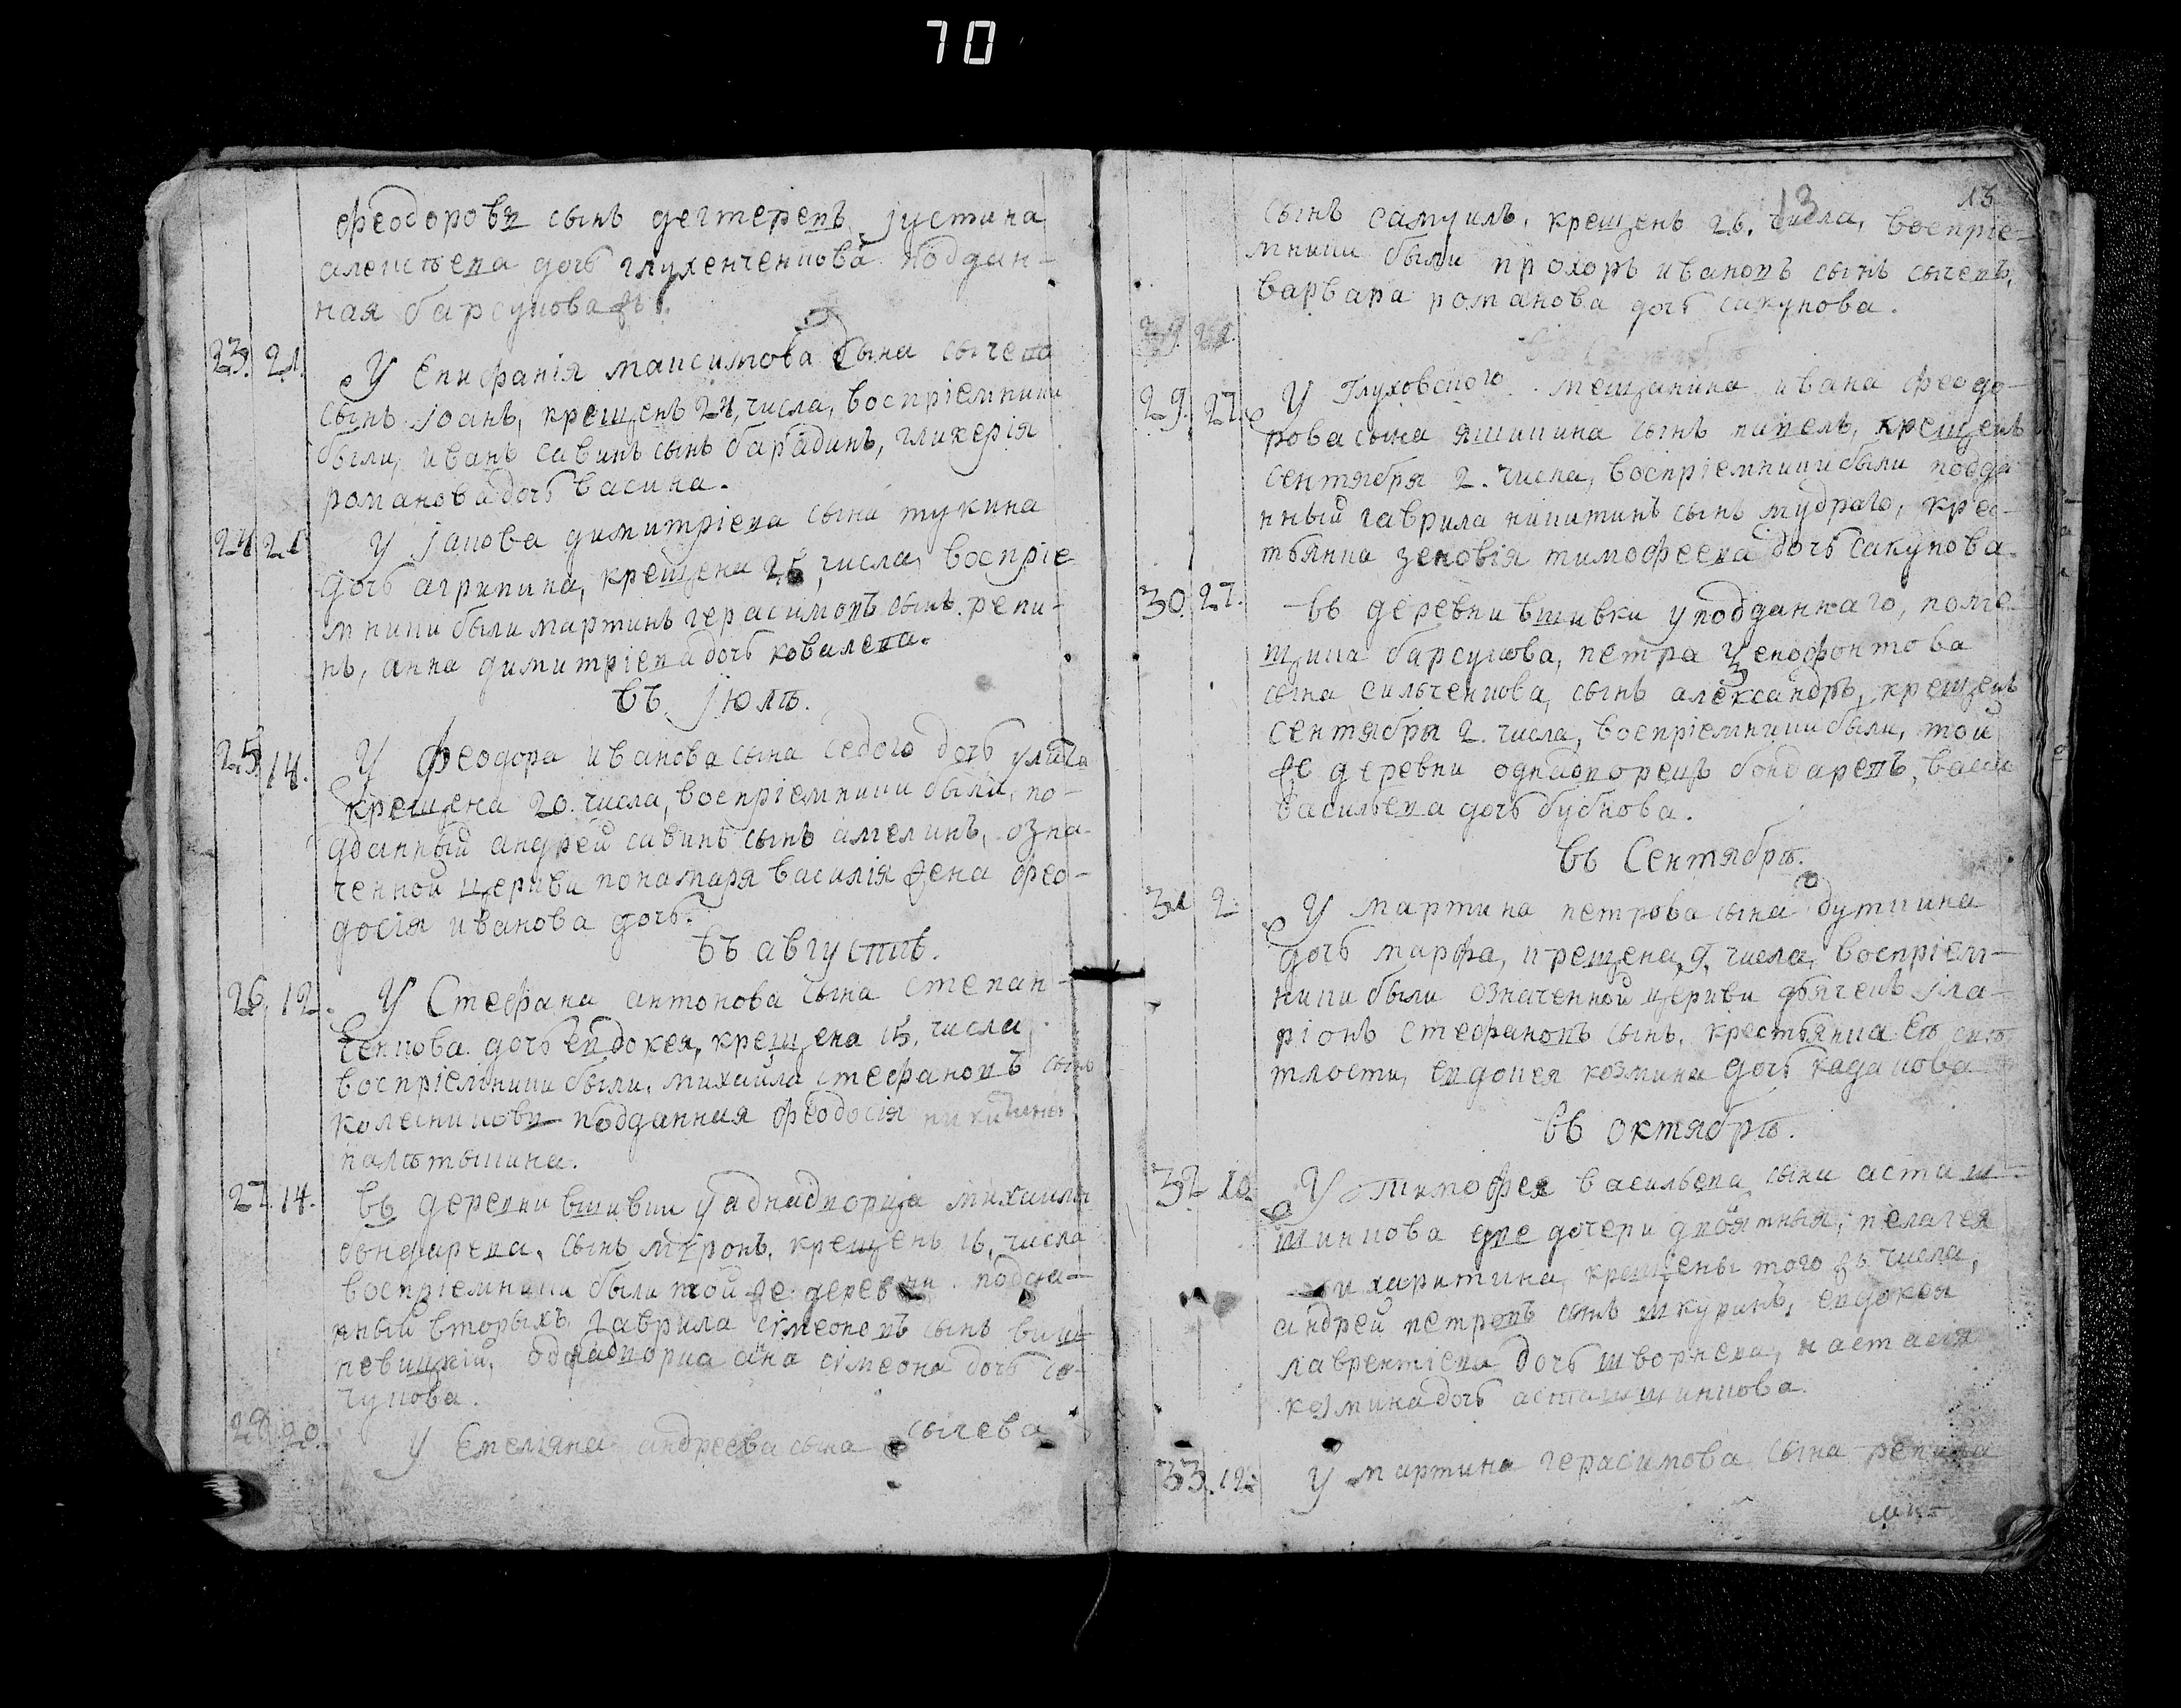 70
феодоровъ сынъ дегтеревъ, јустина
алеѯѣева дочь глухенченкова поддан-
ная барсукова жъ.
23. 21. У Епифанія маѯимова сына сычева
сынъ јоанъ, крещенъ 24, числа, воспріемники
были, иванъ савинъ сынъ барадинъ, гликерія
романова дочь васина.
24 21 У јакова димитріева сына тукина
дочь агрипина, крещена 25, числа, воспріе
мники были мартинъ герасимовъ сынъ репи-
нъ, анна димитріева дочь ковалева.
въ јюлѣ.
25. 14. У феодора иванова сына седого дочь улита
крещена 20. числа, воспріемники были, по-
дданный андрей савинъ сынъ амелинъ, озна-
ченной церкви пономаря василія жена фео-
досія иванова дочь.
въ августѣ.
26. 12. У Стефана антонова сына степан-
ченкова дочь евдокея, крещена 15, числа
воспріемники были, михаила стефановъ сынъ
колесниковъ подданная феодосія никитина
палѣтыкина.
27. 14. въ деревни вшивки у аднадворца михаила
бондарева, сынъ мѵронъ, крещенъ 16, числа
воспріемники были той же деревни подда-
нный вторыхъ гаврила сімеоновъ сынъ виш-
невицкій, однадворка анна сімеона дочь со-
чукова.
28. 20. У Емеліяна андреева сына сычева
13
13
сынъ самуилъ, крещенъ 26. числа, воспріе-
мники были прохоръ ивановъ сынъ сычевъ,
варвара романова дочь сакунова.
29. 27. У Глуховского мещанина ивана феодо-
рова сына яшкина сынъ павелъ, крещенъ
сентября 2. числа, воспріемники были подда
нный гаврила никитинъ сынъ мудраго, крес-
тьянка зеновія тимофеева дочь сакунова.
30. 27. въ деревни вшивки у подданнаго, поме-
щика барсукова, петра ѯенофонтова
сына сильченкова, сынъ александръ, крещенъ
сентябры 2. числа, воспріемники были, той
же деревни однадворецъ бондаревъ,
васильева дочь бубнова.
въ Сентябрѣ.
31 2. У мартина петрова сына дуткина
дочь марфа, крещена 9, числа, воспріем-
ники были означенной церкви дьячекъ јла-
ріонъ стефановъ сынъ, крестьянка Ея свѣ
тлости, евдокея козмина дочь кадакова
въ октябрѣ.
32 10. У тимофея васильева сына асташ-
шинкова две дочери двоятныя, пелагея
и харитина, крещены того жъ числа,
андрей петровъ сынъ шкуринъ, евдокея
лаврентіева дочь шворнева, настасія
козмина дочь асташшинкова.
33. 12. У мартина герасимова сына репина